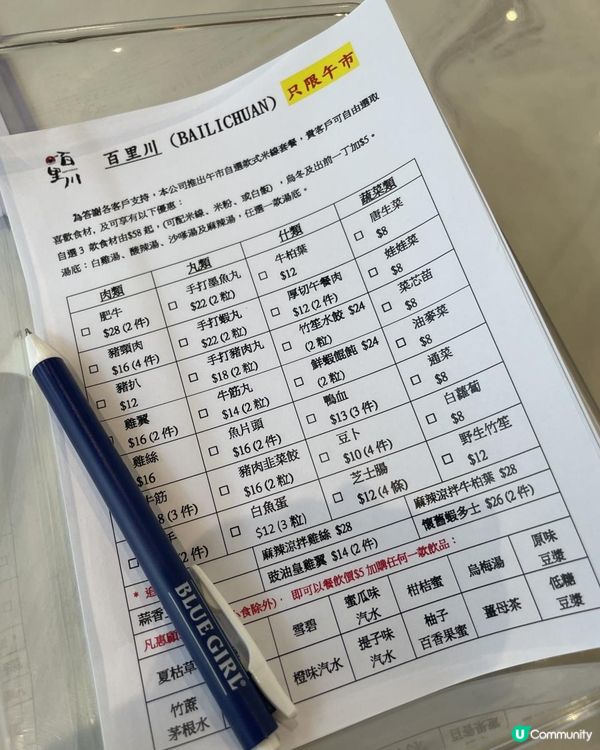 百里川
百里川 (BAILICHUAN)
只限午市
為答謝各客戶支持，本公司推出午市自選款式米線套餐，貴客戶可自由選取
喜歡食材, 及可享有以下優惠：
自選 3 款食材由$58 起，(可配米線、米粉、或白飯)，烏冬及出前一丁加$5。
湯底：白雞湯、酸辣湯、沙嗲湯及麻辣湯，任選一款湯底。
肉類 丸類 什類 蔬菜類
肥牛 $28 (2 件)
手打墨魚丸 $22 (2 粒)
牛柏葉 $12
唐生菜 $8
豬頸肉 $16 (4 件)
手打蝦丸 $22 (2 粒)
厚切午餐肉 $12 (2 件)
娃娃菜 $8
豬扒 $12
手打豬肉丸 $18 (2 粒)
竹笙水餃 $24 (2 粒)
菜芯苗 $8
雞翼 $16 (2 件)
牛筋丸 $14 (2 粒)
鮮蝦餛飩 $24 (2 粒)
油麥菜 $8
雞絲 $16
魚片頭 $16 (2 件)
鴨血 $13 (3 件)
通菜 $8
筋 (3 件)
豬肉韭菜餃 $16 (2 粒)
豆卜 $10 (4 件)
白蘿蔔 $8
手
白魚蛋 $12 (3 粒)
芝士腸 $12 (4 條)
野生竹笙 $12
麻辣涼拌雞絲 $28
麻辣涼拌牛柏葉 $28
豉油皇雞翼 $14 (2 件)
懷舊蝦多士 $26 (2 件)
* 追
食除外)，即可以餐飲價$5 加購任何一款飲品：
蒜香
凡惠顧
雪碧
蜜瓜味汽水
柑桔蜜
烏梅湯
原味豆漿
夏枯草
橙味汽水
提子味汽水
柚子百香果蜜
薑母茶
低糖豆漿
竹蔗茅根水
BLUE GIRL
U Community